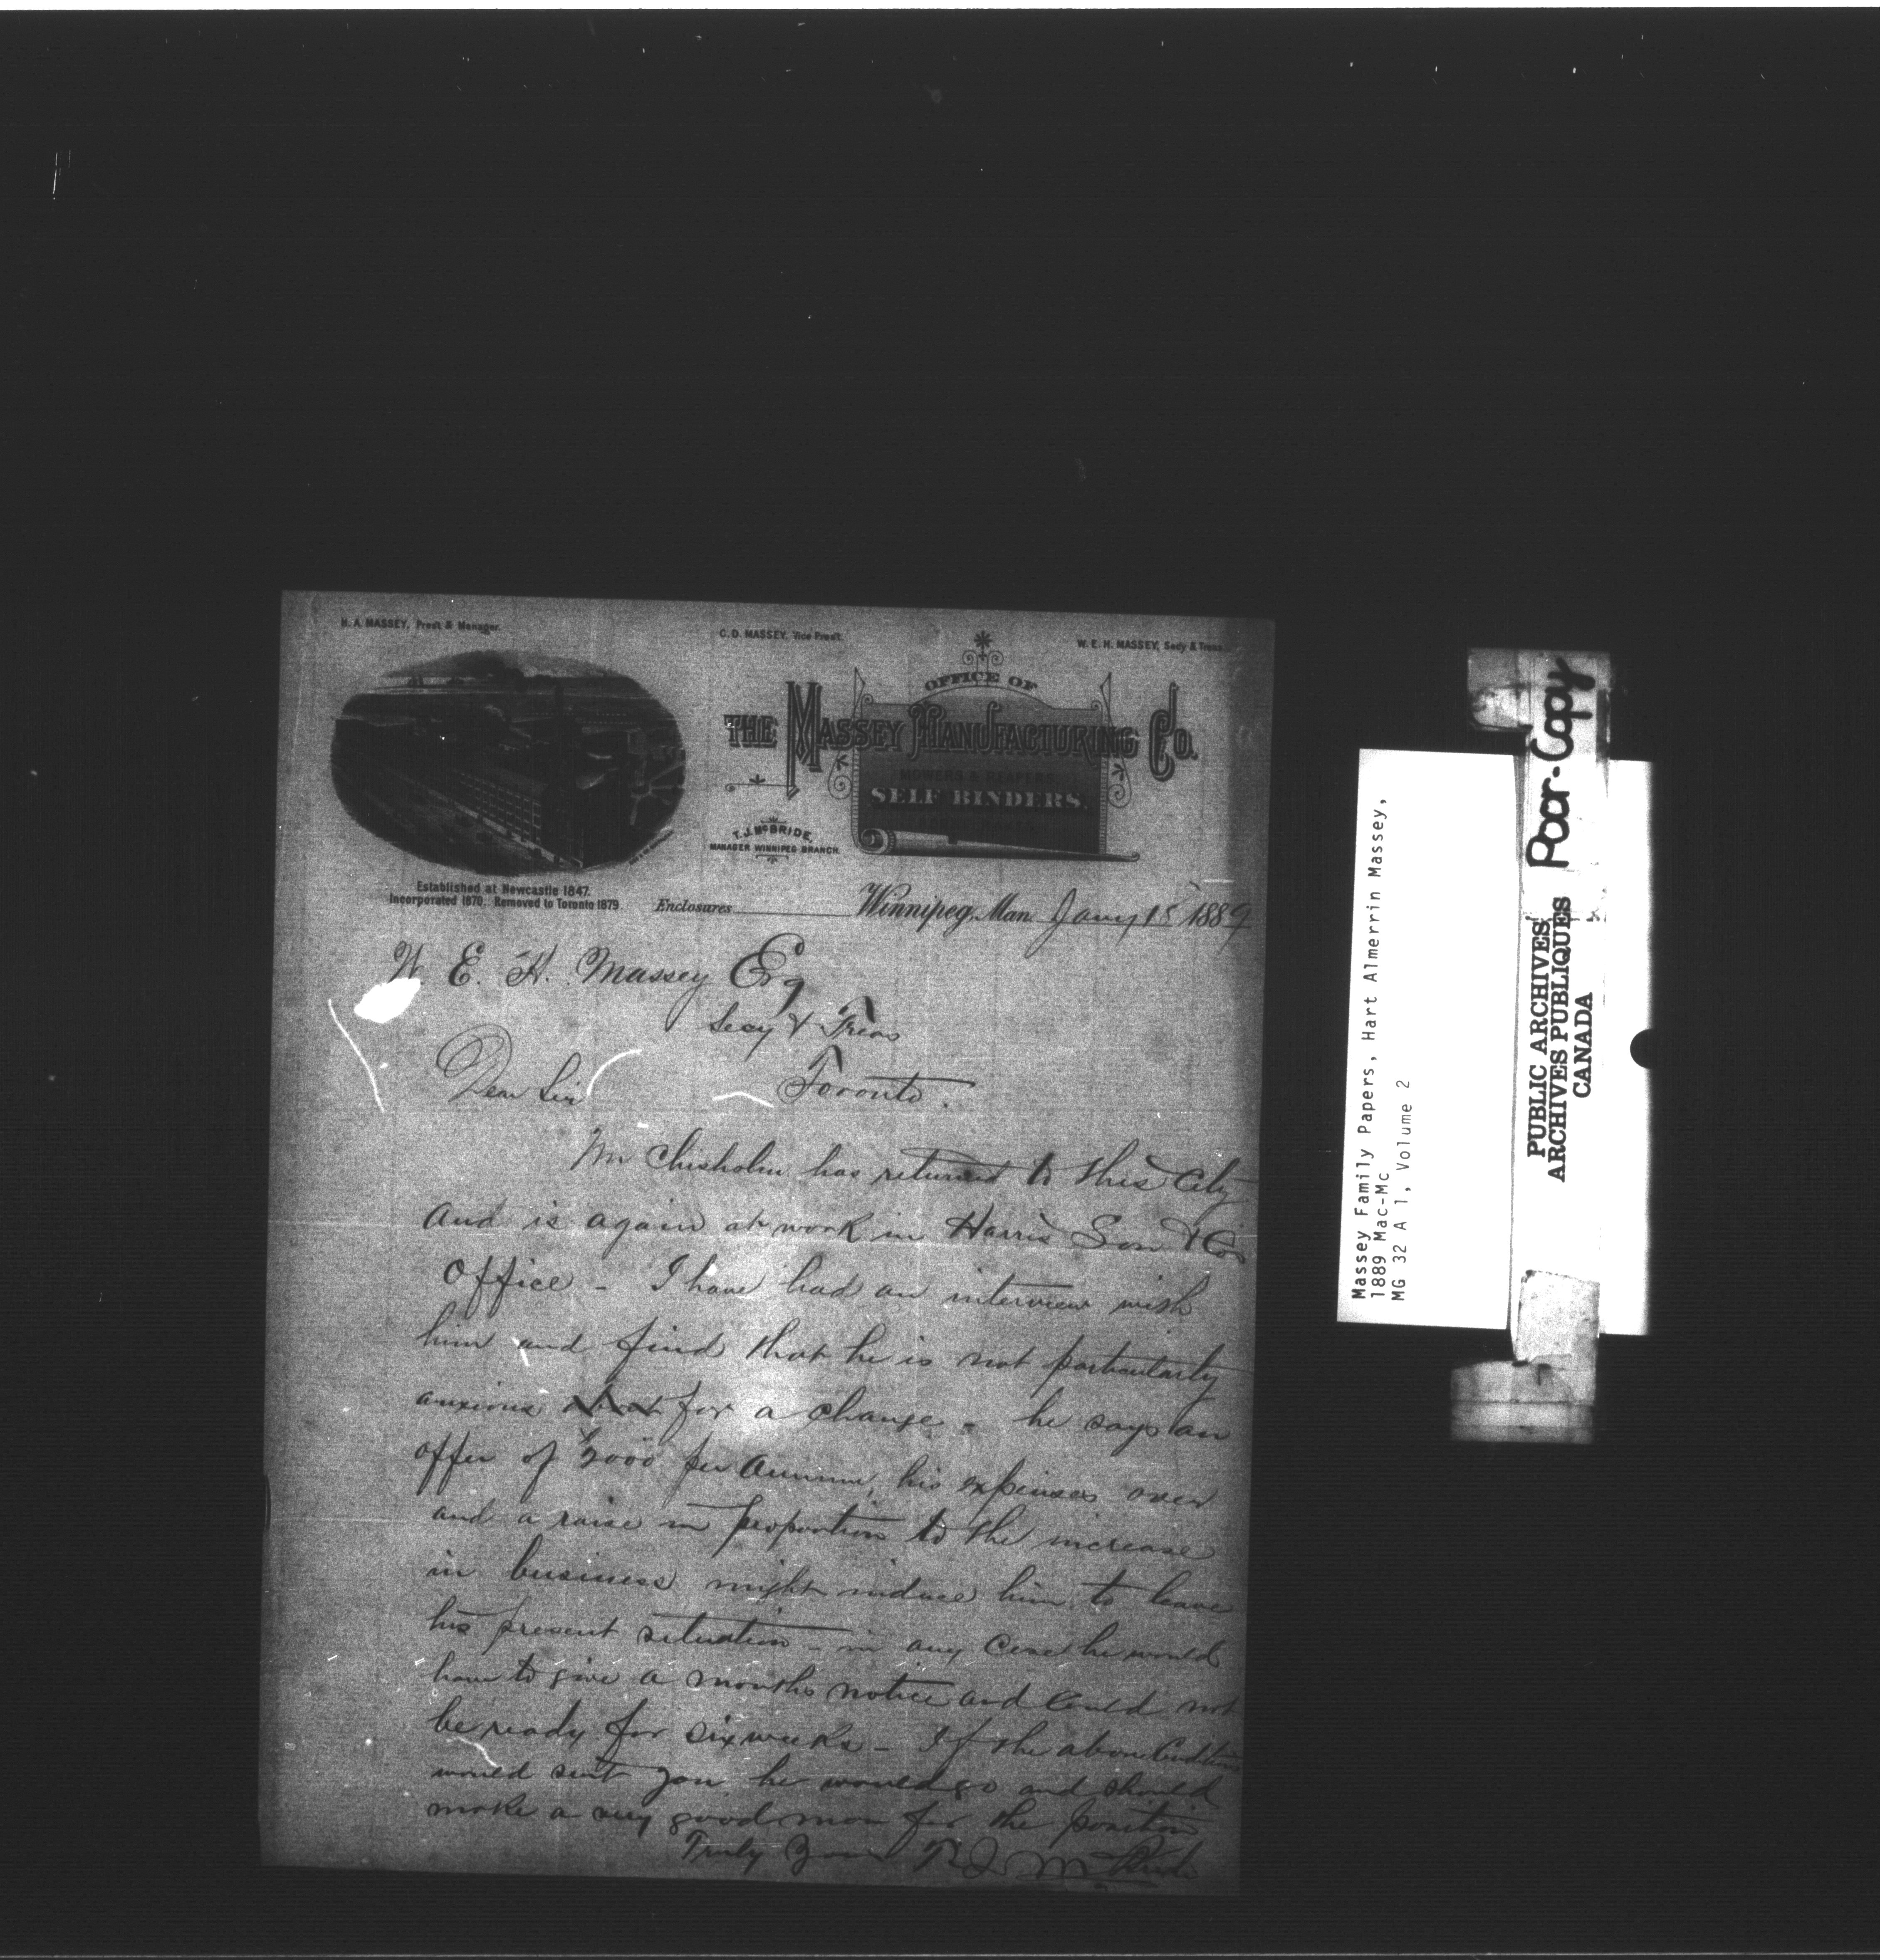 H. A. MASSEY, Prest & Manager.
C. D. MASSEY, Vice Prest.
W. E. H. MASSEY, Secy & Treas.
OFFICE OF
THE MASSEY MANUFACTURING CO.
MOWERS & REAPERS
SELF BINDERS,
HORSE RAKES
T. J. McBRIDE,
MANAGER WINNIPEG BRANCH.
Established at Newcastle 1847.
Incorporated 1870. Removed to Toronto 1879.
Enclosures
Winnipeg, Man. Jany 15 1889
W. E. H. Massey Esq
Secy & Treas
Toronto.
Dear Sir
Mr Chisholm has returned to this City
and is again at work in Harris Son & Cos
Office - I have had an interview with
him and find that he is not particularly
anxious for a change - he says an
offer of $2000 per Annum, his expenses over
and a raise in proportion to the increase
in business might induce him to leave
his present situation - in any Case he would
have to give a months notice and Could not
be ready for six weeks - If the above Conditions
would suit you he would go and should
make a very good man for the position
Truly Yours T J McBride
Massey Family Papers, Hart Almerrin Massey,
1889 Mac-Mc
MG 32 A 1, Volume 2
PUBLIC ARCHIVES
ARCHIVES PUBLIQUES
CANADA
Poor-Copy